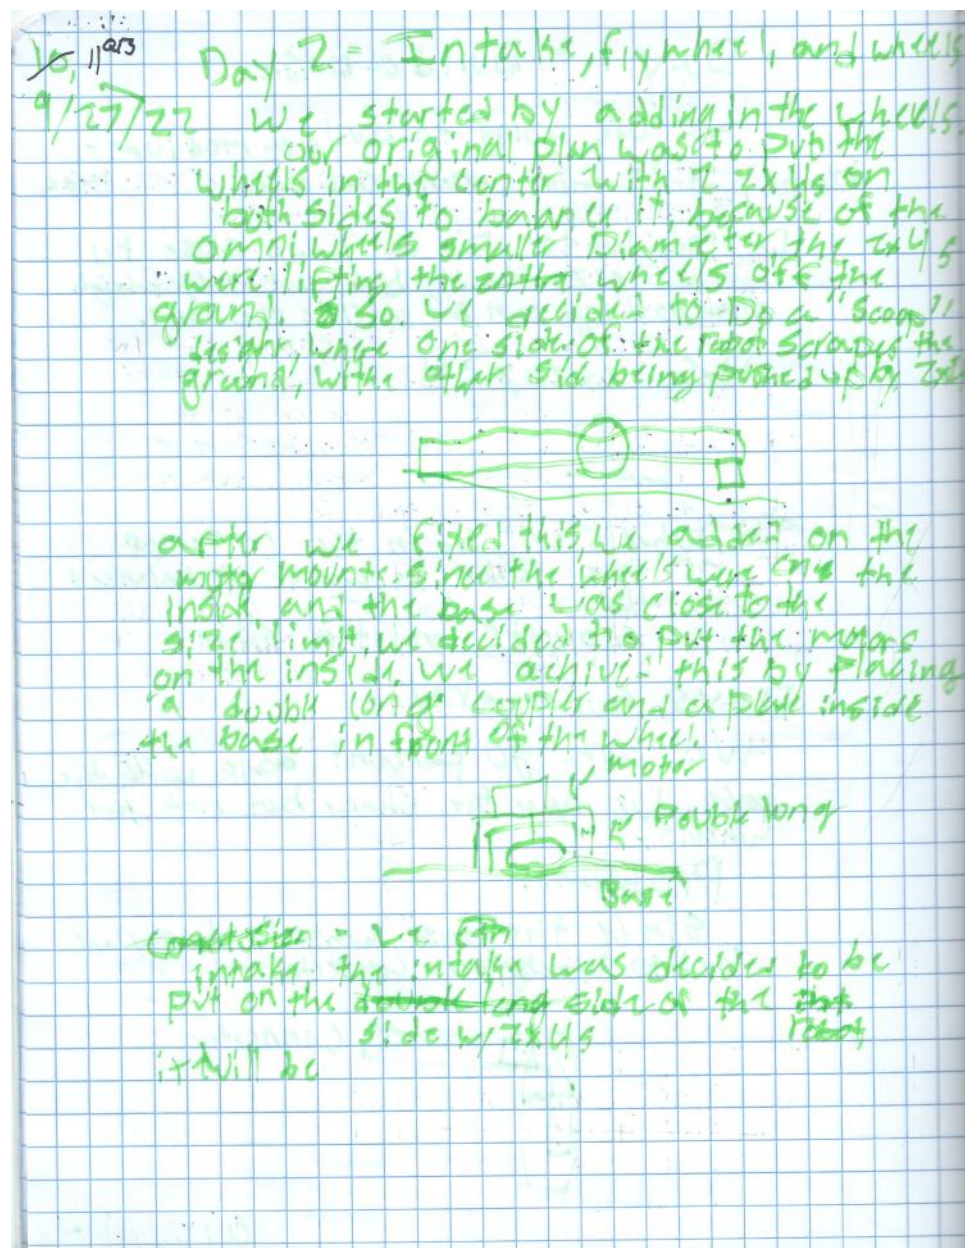 10, 11
Day 2 = Intake, flywheel, and wheels
9/27/22 We started by adding in the wheels
our original plan was to put the
wheels in the center with 2 2x4s on
both sides to balance it. because of the
omni wheels smaller Diameter, the 2x4s
were lifting the wheels off the
ground. So. we decided to Do a "scoop"
design, where one side of the robot scrapes the
ground, with other sid being pushed up by
after we fixed this, we added on the
motor mounts. since the wheels were the
insid, and the base was close to the
size limit, we decided to put the motors
on the inside. we this by placing
a double long coupler and a plate inside
the base in front of the wheel.
motor
Double long
Base
Conclusion - we
intake the intake was decided to be
put on the double long side of the
side w/ 2x4s robot
it will be